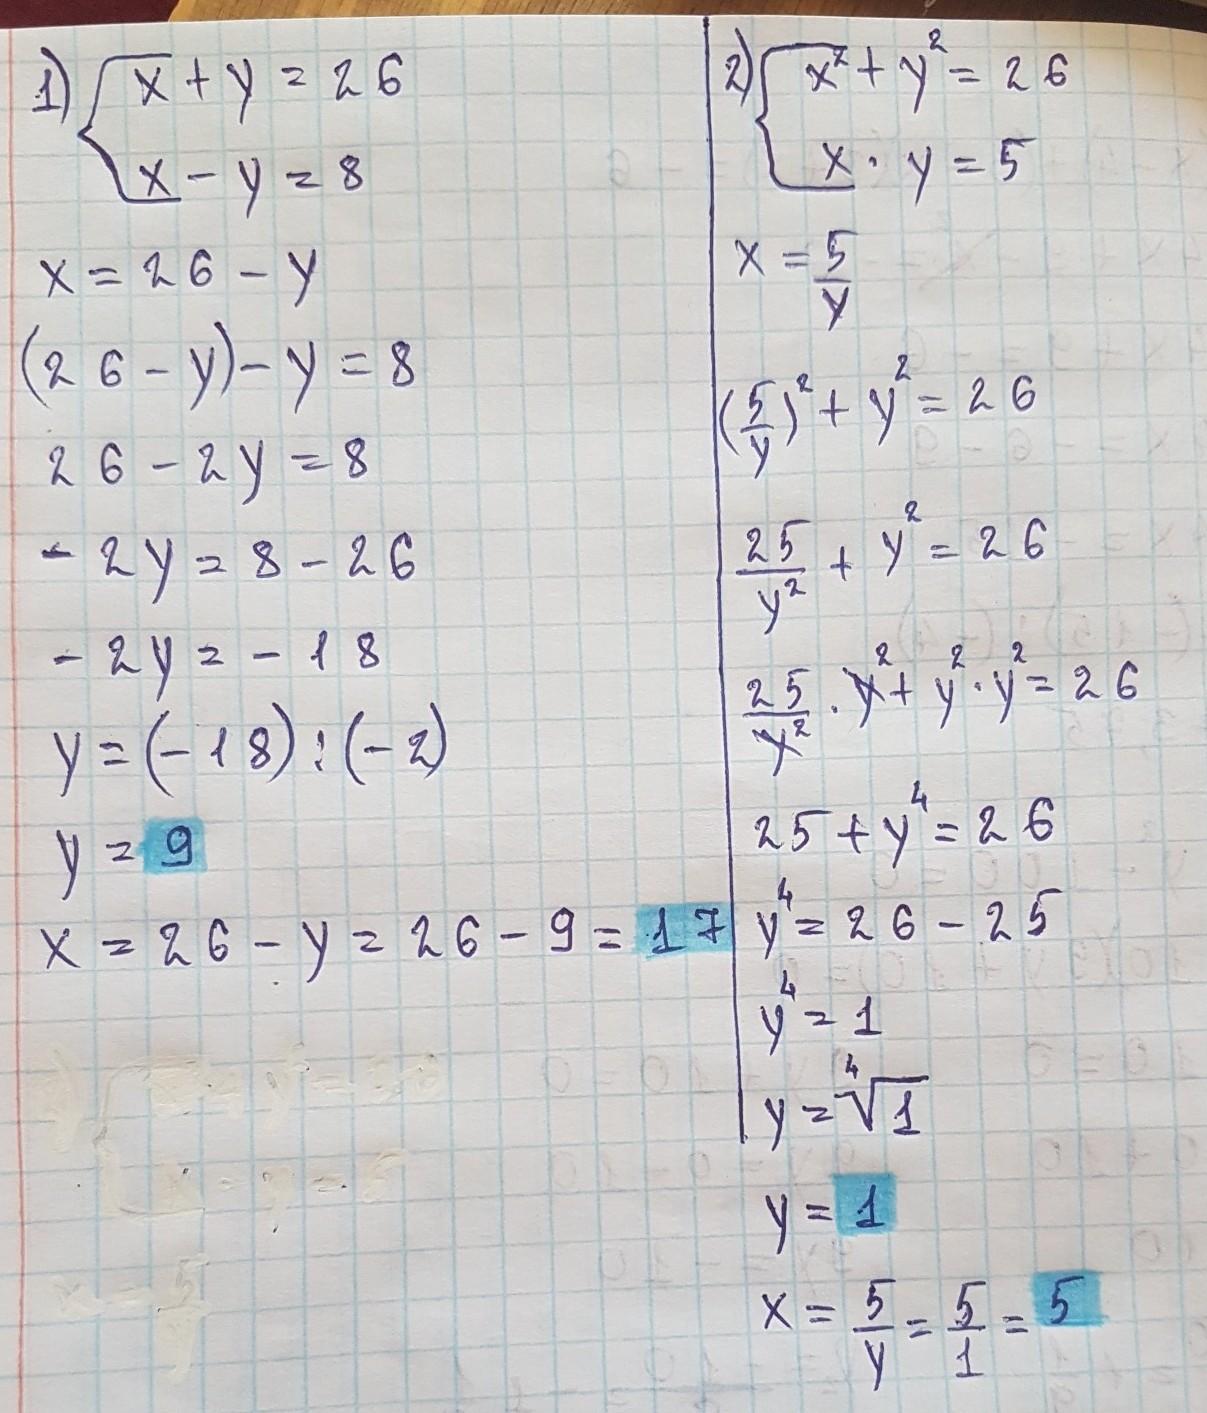 1) { x + y = 26
x - y = 8
x = 26 - y
(26 - y) - y = 8
26 - 2y = 8
- 2y = 8 - 26
- 2y = - 18
y = (-18) : (-2)
y = 9
x = 26 - y = 26 - 9 = 17
2) { x² + y² = 26
x · y = 5
x = 5/y
(5/y)² + y² = 26
25/y² + y² = 26
25/y² · y² + y² · y² = 26
25 + y⁴ = 26
y⁴ = 26 - 25
y⁴ = 1
y = ⁴√1
y = 1
x = 5/y = 5/1 = 5